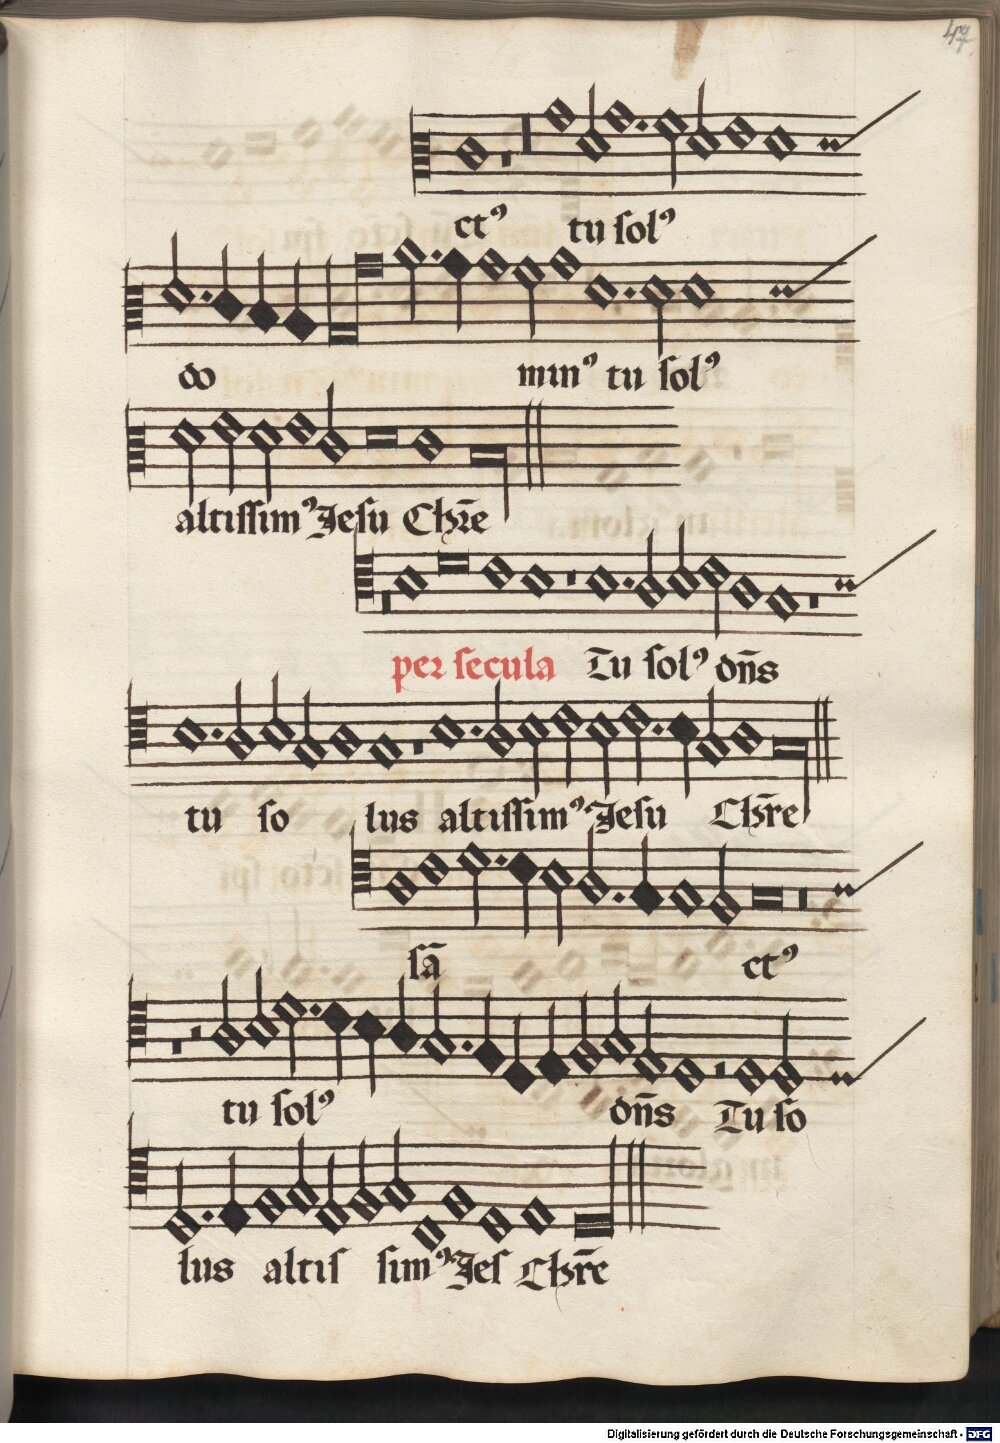 47
ctꝰ tu ſolꝰ
do minꝰ tu ſolꝰ
altiſſimꝰ Jeſu Chr̄e
per ſecula Tu ſolꝰ dn̄s
tu ſo lus altiſſimꝰ Jeſu Chr̄e
ſā ctꝰ
tu ſolꝰ dn̄s Tu ſo
lus altiſ ſimꝰ Jeſ Chr̄e
Digitalisierung gefördert durch die Deutsche Forschungsgemeinschaft - DFG